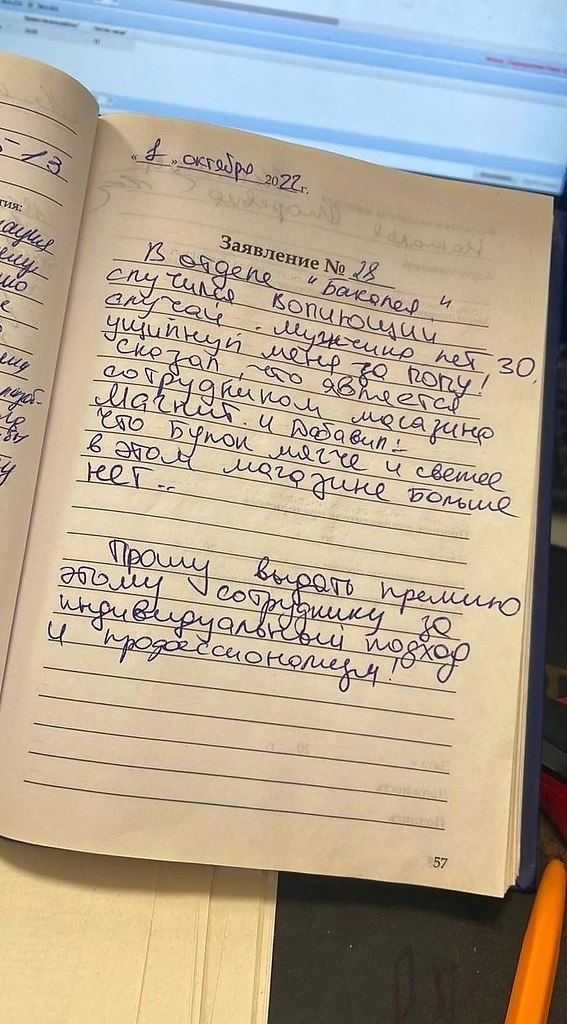 « 8 » октября 2022 г.
Заявление № 28
В отделе "Бакалея"
случился вопиющий
случай. мужчина лет 30,
ущипнул меня за попу!
сказал, что является
сотрудником магазина
Магнит. и добавил:-
что булок мягче и свежее
в этом магазине больше
нет..
Прошу выдать премию
этому сотруднику за
индивидуальный подход
и профессионализм!
57